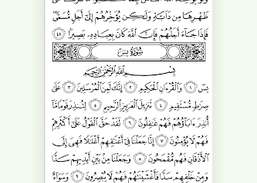 ظَهْرِهَا مِن دَآبَّةٍ وَلَٰكِن يُؤَخِّرُهُمْ إِلَىٰٓ أَجَلٍ مُّسَمًّى
فَإِذَا جَآءَ أَجَلُهُمْ فَإِنَّ ٱللَّهَ كَانَ بِعِبَادِهِۦ بَصِيرًۢا ٤٥
سُورَةُ يسٓ
بِسْمِ ٱللَّهِ ٱلرَّحْمَٰنِ ٱلرَّحِيمِ
يسٓ ١ وَٱلْقُرْءَانِ ٱلْحَكِيمِ ٢ إِنَّكَ لَمِنَ ٱلْمُرْسَلِينَ ٣ عَلَىٰ
صِرَٰطٍ مُّسْتَقِيمٍ ٤ تَنزِيلَ ٱلْعَزِيزِ ٱلرَّحِيمِ ٥ لِتُنذِرَ قَوْمًا مَّآ
أُنذِرَ ءَابَآؤُهُمْ فَهُمْ غَٰفِلُونَ ٦ لَقَدْ حَقَّ ٱلْقَوْلُ عَلَىٰٓ أَكْثَرِهِمْ
فَهُمْ لَا يُؤْمِنُونَ ٧ إِنَّا جَعَلْنَا فِىٓ أَعْنَٰقِهِمْ أَغْلَٰلًا فَهِىَ إِلَى
ٱلْأَذْقَانِ فَهُم مُّقْمَحُونَ ٨ وَجَعَلْنَا مِنۢ بَيْنِ أَيْدِيهِمْ سَدًّا
وَمِنْ خَلْفِهِمْ سَدًّا فَأَغْشَيْنَٰهُمْ فَهُمْ لَا يُبْصِرُونَ ٩ وَسَوَآءٌ